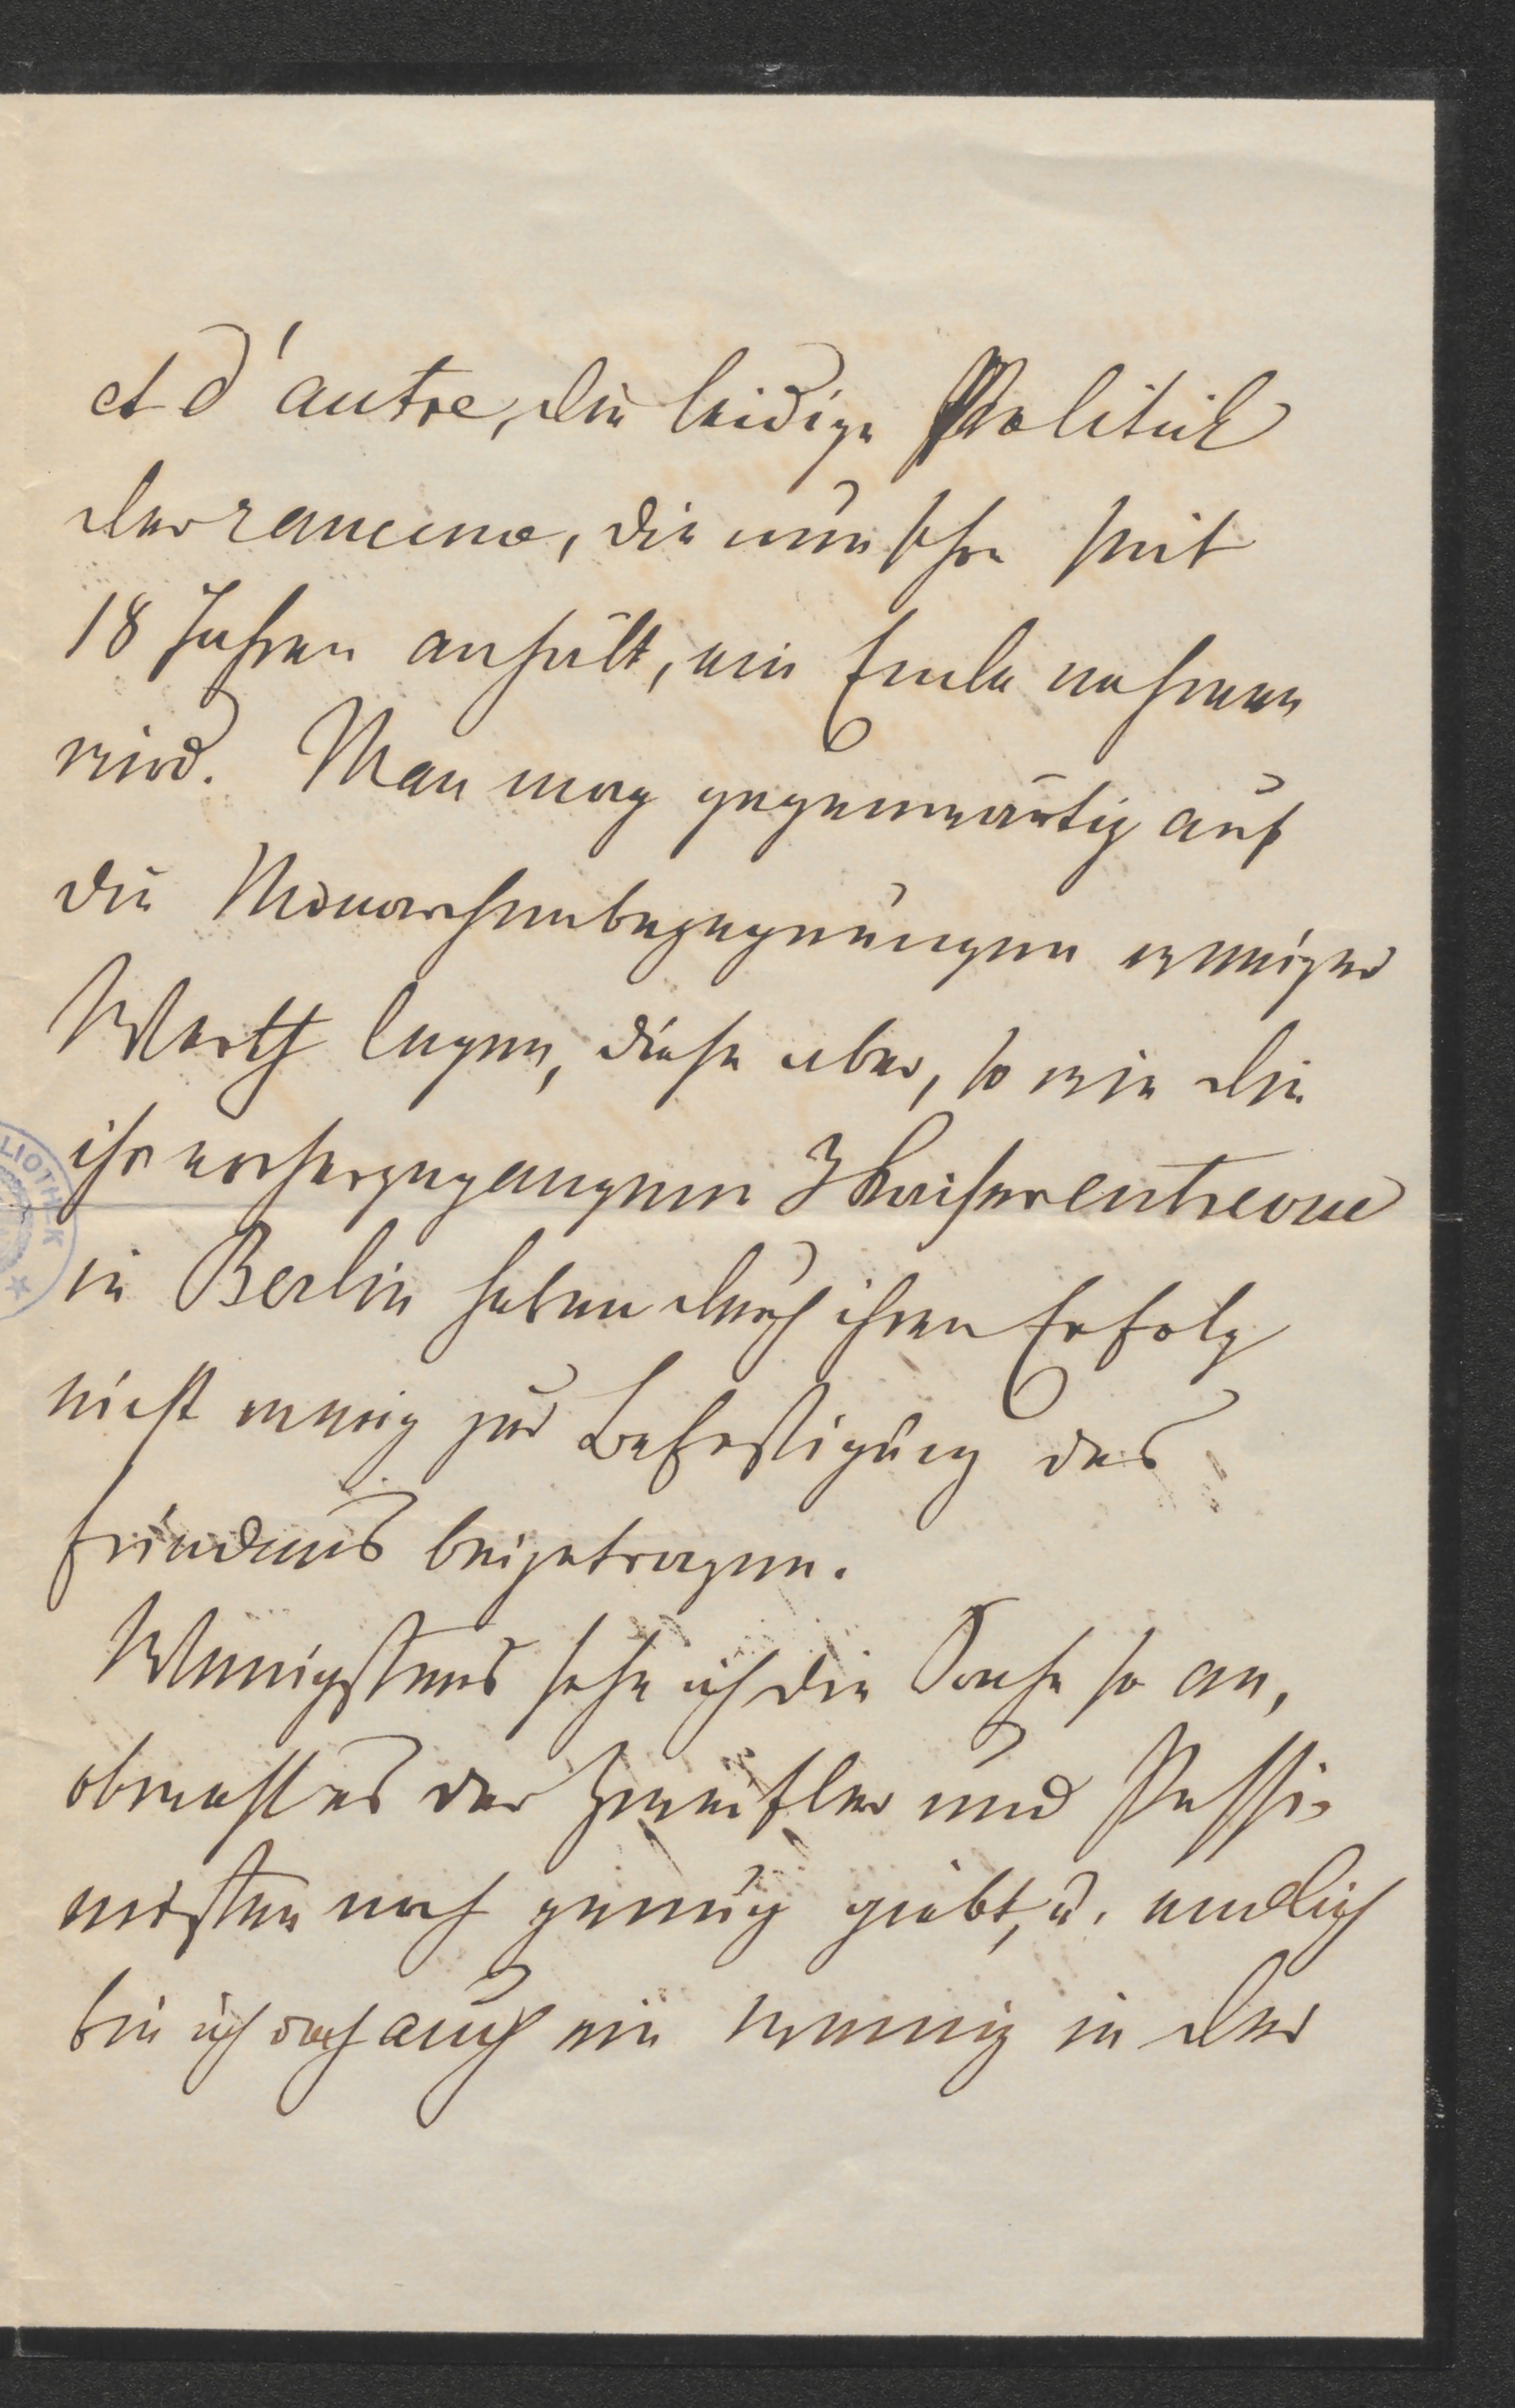 et d'autre, die leidige Politik
der rancune, die nun schon seit
18 Jahren anhält, ein Ende nehmen
wird. Man mag gegenwärtig auf
die Monarchenbegegnungen weniger
Werth legen, diese aber, so wie die
ihr vorhergegangenen 3 Kaiserentrevue
in Berlin haben durch ihren Erfolg
nicht wenig zur Befestigung des
Friedens beigetragen.
Wenigstens sehe ich die Sache so an,
obwohl es der Zweifler und Pessi-
misten noch genug giebt, u. endlich
bin ich doch auch ein wenig in der
LIOTHEK